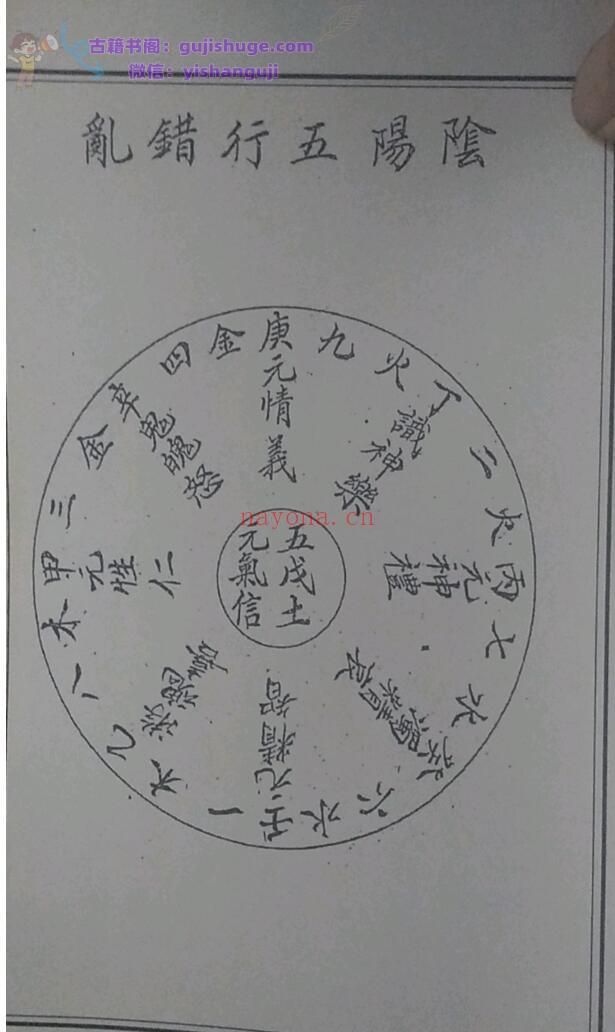 古籍书阁：gujishuge.com
微信：yishanguji
陰陽五行錯亂
庚元情義
九
火
丁
識神樂
二
火
丙元神禮
七
水
癸濁精哀
六
水
壬元精智
一
木
乙
游魂喜
八
木
甲元性仁
三
金
辛鬼魄怒
四
金
五戊土
元氣信
nayona.cn